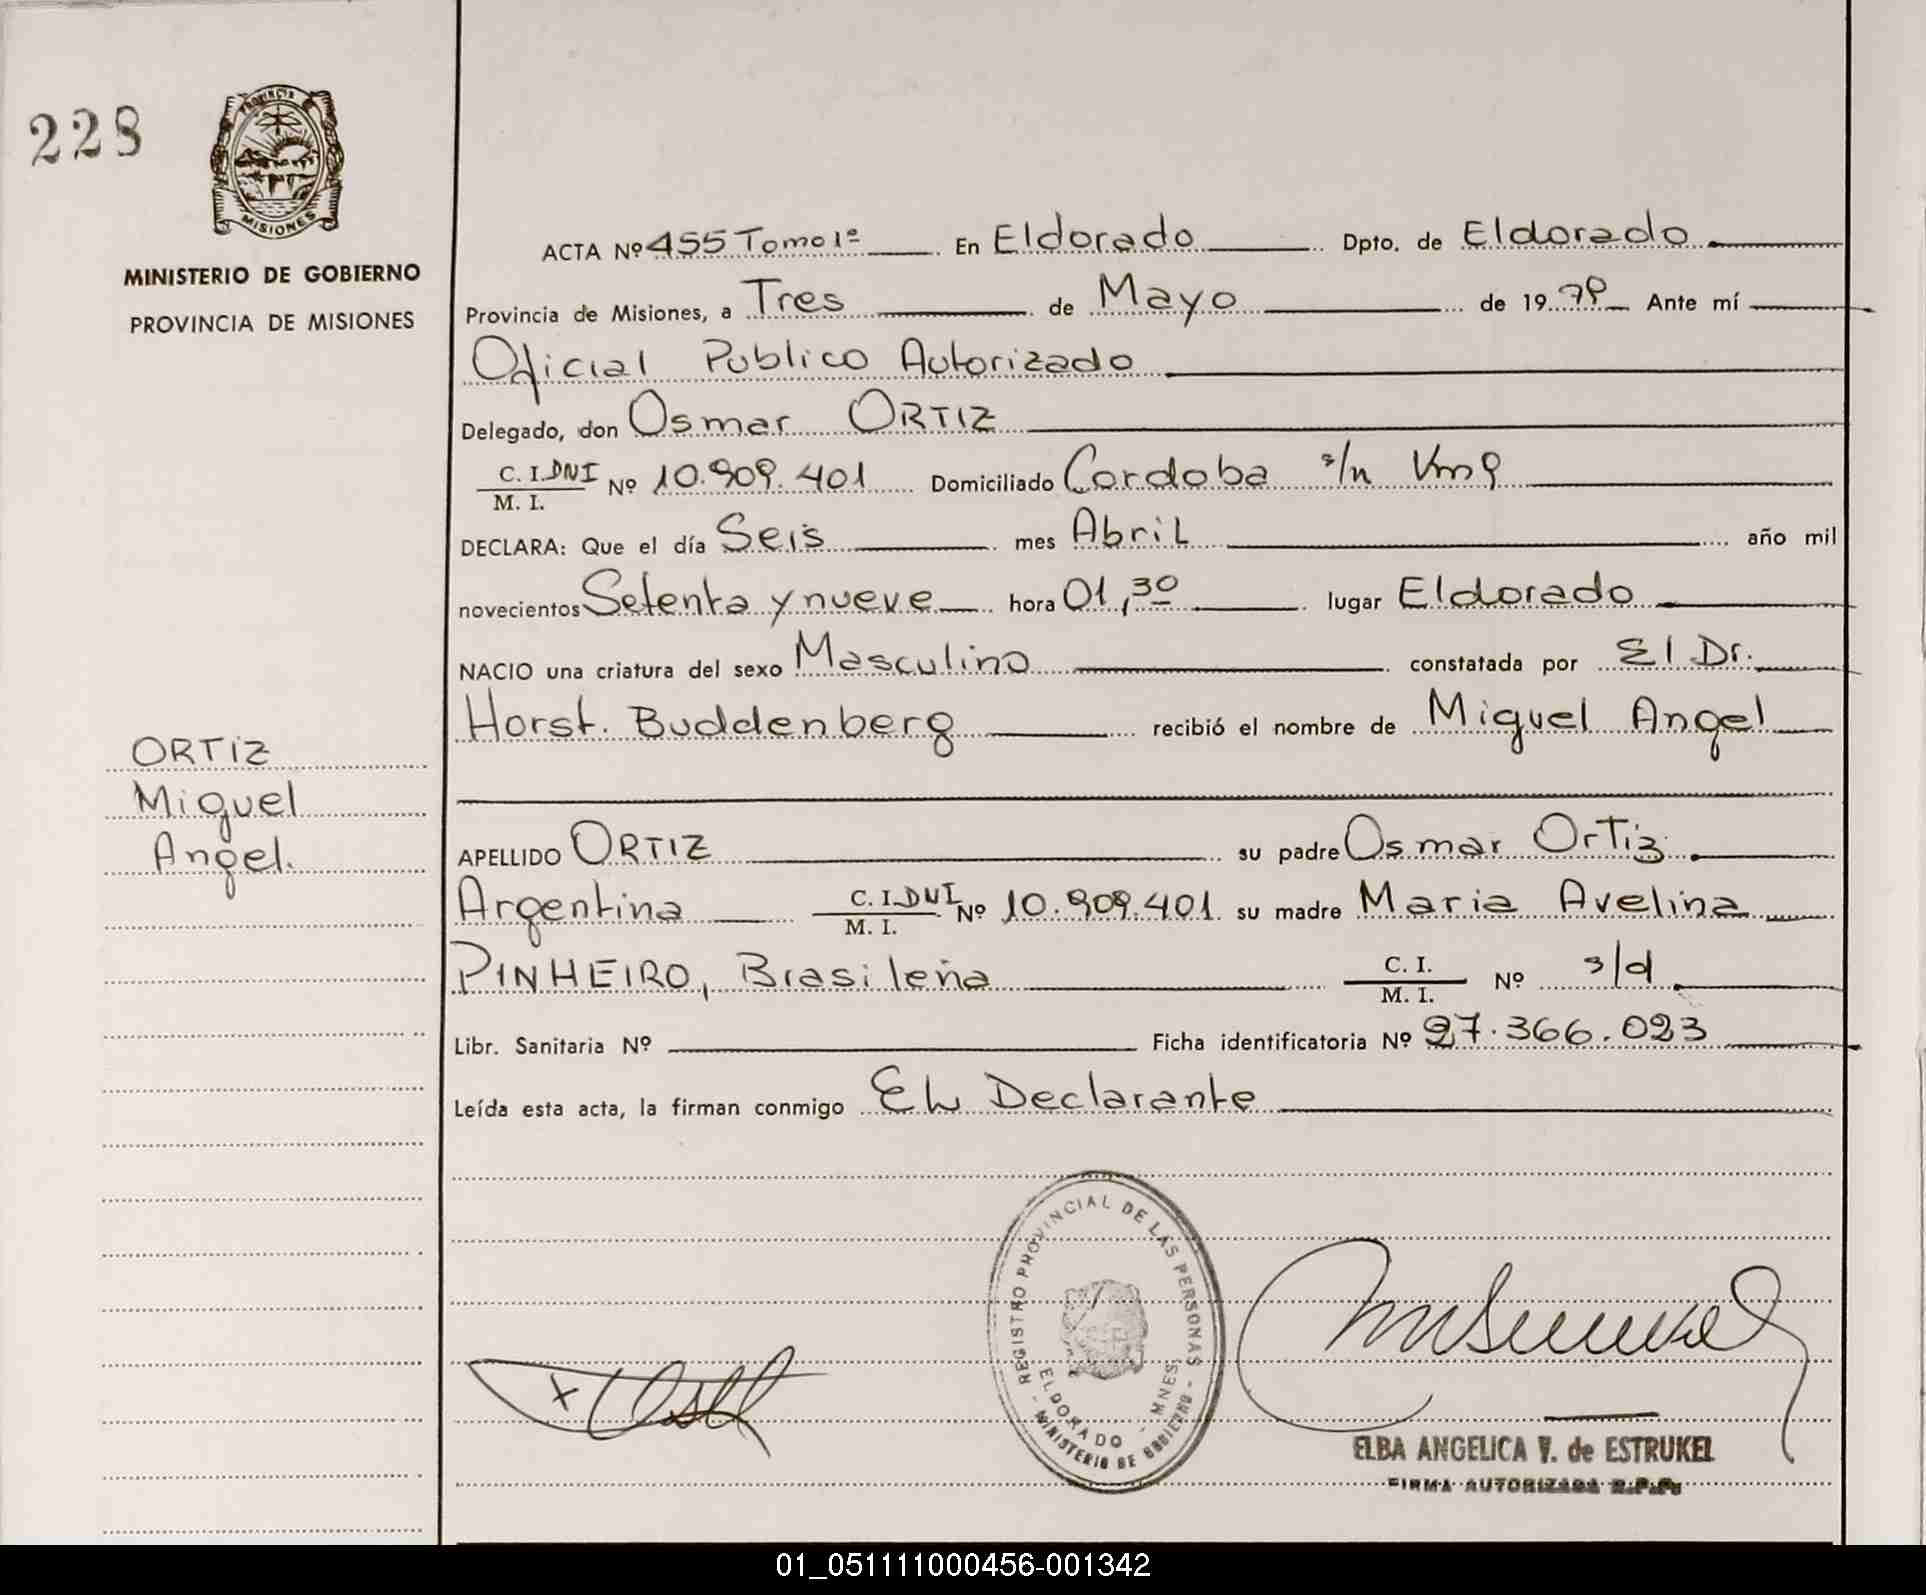 228
PROVINCIA
MISIONES
MINISTERIO DE GOBIERNO
PROVINCIA DE MISIONES
ORTIZ
Miguel
Angel.
ACTA Nº 455 Tomo 1º En Eldorado Dpto. de Eldorado
Provincia de Misiones, a Tres de Mayo de 19 79 Ante mí
Oficial Publico Autorizado
Delegado, don Osmar ORTIZ
C. I. DNI
M. I.
Nº 10.909.401 Domiciliado Cordoba s/n Km 9
DECLARA: Que el día Seis mes Abril año mil
novecientos Setenta y nueve hora 01,30 lugar Eldorado
NACIO una criatura del sexo Masculino constatada por El Dr.
Horst. Buddenberg recibió el nombre de Miguel Angel
APELLIDO ORTIZ su padre Osmar Ortiz
Argentina C. I. DNI
M. I.
Nº 10.909.401 su madre Maria Avelina
PINHEIRO, Brasileña C. I.
M. I.
Nº s/d
Libr. Sanitaria Nº Ficha identificatoria Nº 27.366.023
Leída esta acta, la firman conmigo El Declarante
REGISTRO PROVINCIAL DE LAS PERSONAS
ELDORADO - MNES.
- MINISTERIO DE GOBIERNO -
ELBA ANGELICA V. de ESTRUKEL
FIRMA AUTORIZADA R.P.P.
01_051111000456-001342